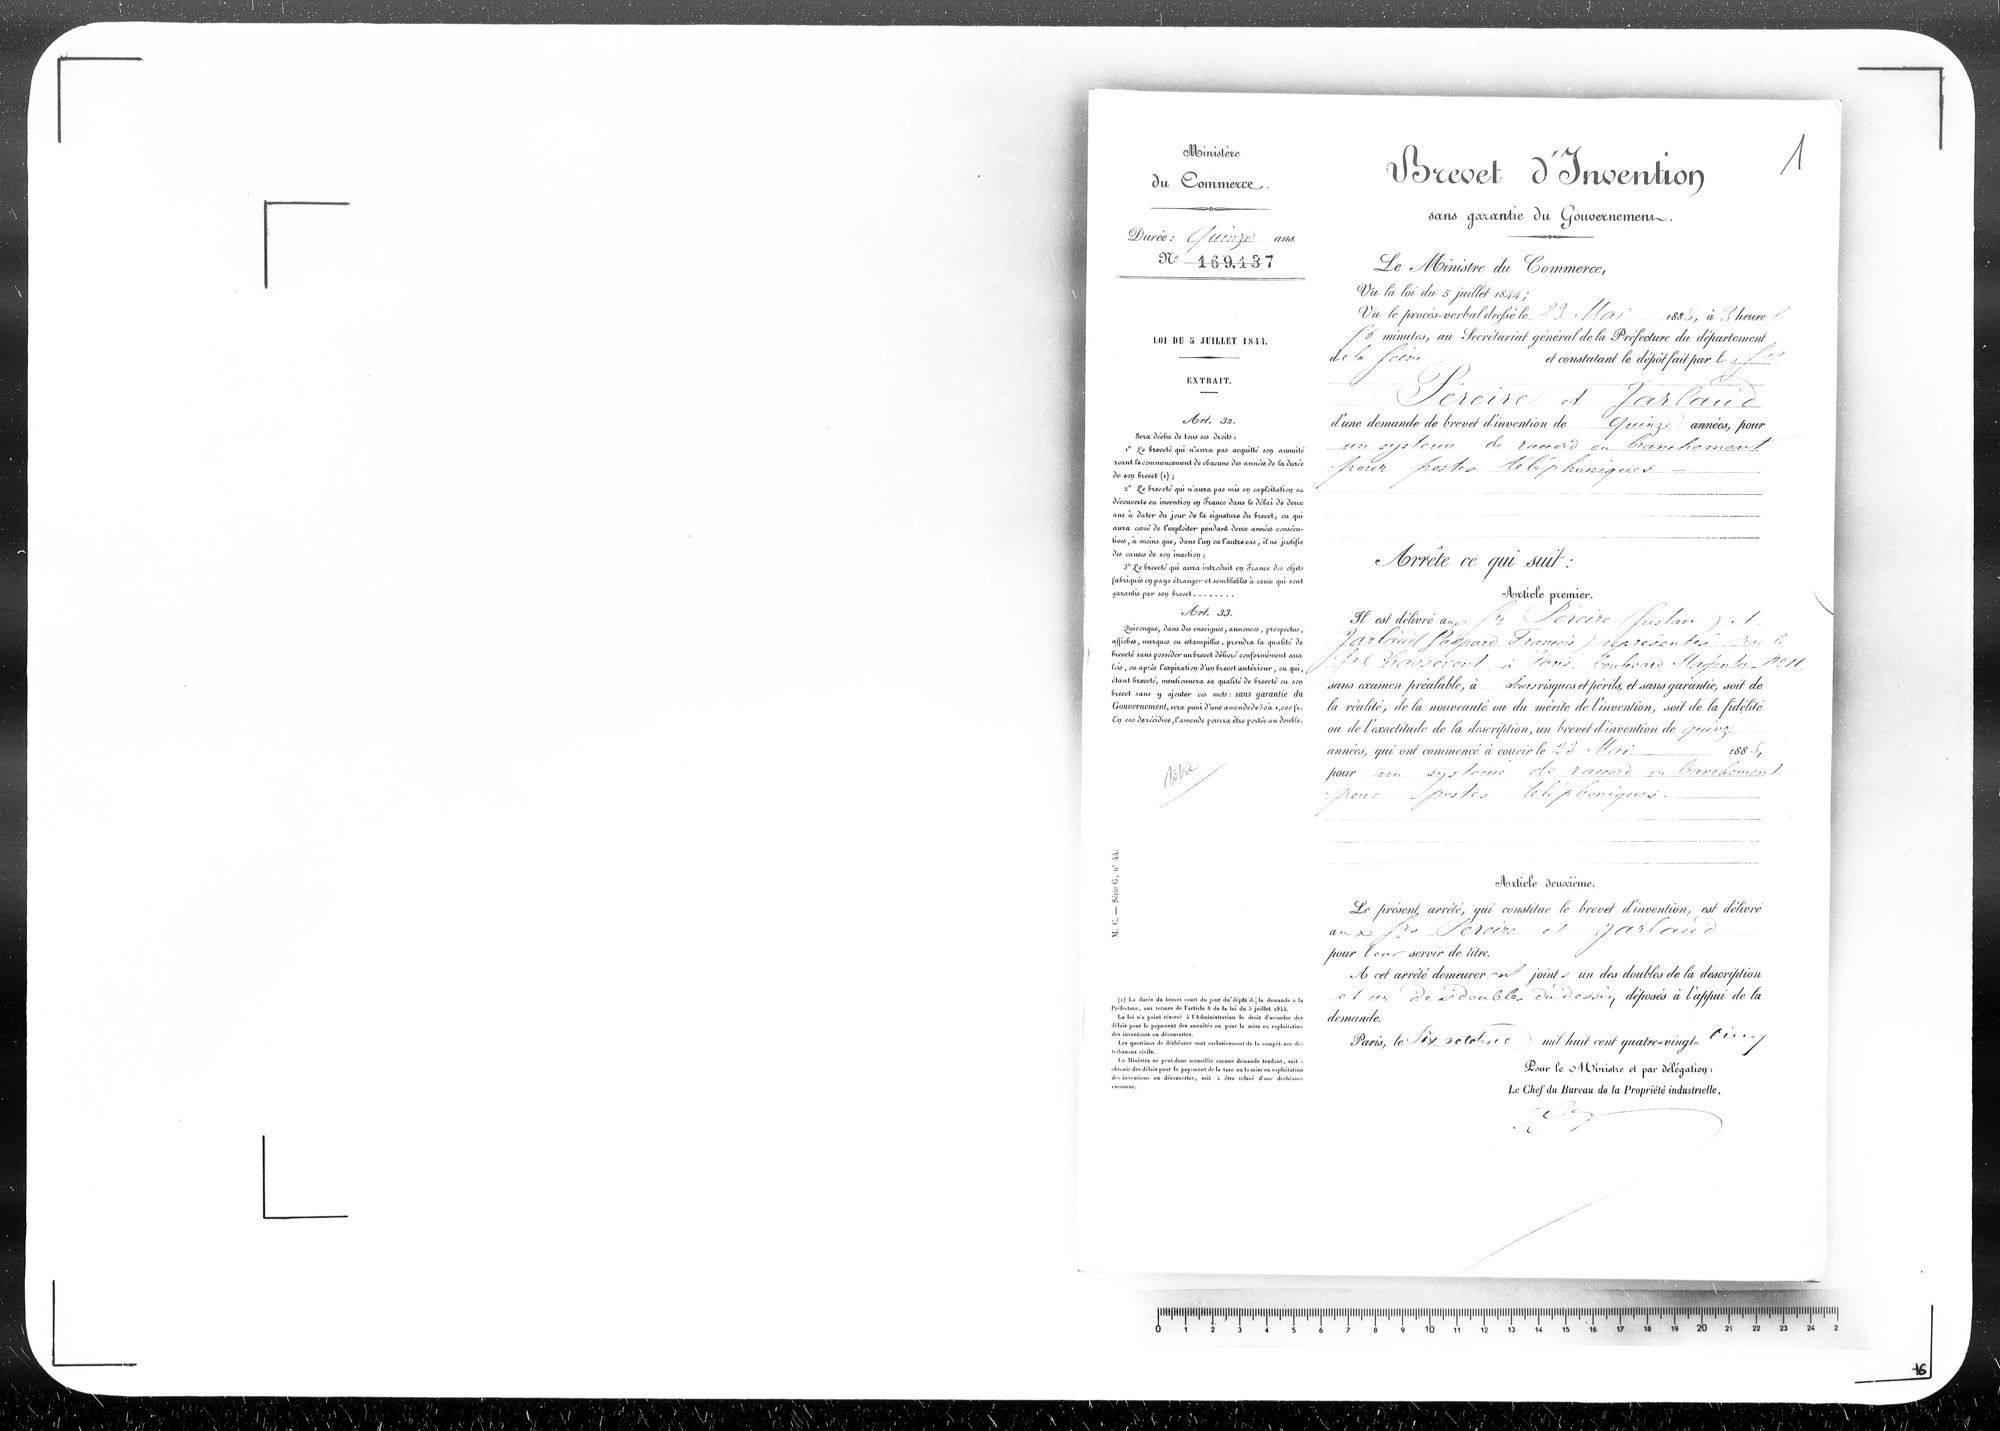 1
Ministère
du Commerce.
Durée: Quinze ans.
N° 169.137
LOI DU 5 JUILLET 1844.
EXTRAIT.
Art. 32.
Sera déchu de tous ses droits:
1° Le breveté qui n'aura pas acquitté son annuité
avant le commencement de chacune des années de la durée
de son brevet (1);
2° Le breveté qui n'aura pas mis en exploitation sa
découverte ou invention en France dans le délai de deux
ans à dater du jour de la signature du brevet, ou qui
aura cessé de l'exploiter pendant deux années consécu-
tives, à moins que, dans l'un ou l'autre cas, il ne justifie
des causes de son inaction;
3° Le breveté qui aura introduit en France des objets
fabriqués en pays étranger et semblables à ceux qui sont
garantis par son brevet........
Art. 33.
Quiconque, dans des enseignes, annonces, prospectus,
affiches, marques ou estampilles, prendra la qualité de
breveté sans posséder un brevet délivré conformément aux
lois, ou après l'expiration d'un brevet antérieur, ou qui,
étant breveté, mentionnera sa qualité de breveté ou son
brevet sans y ajouter ces mots: sans garantie du
Gouvernement, sera puni d'une amende de 50 à 1,000 fr.
En cas de récidive, l'amende pourra être portée au double.
M. C. — Série G, n° 44.
(1) La durée du brevet court du jour du dépôt de la demande à la
Préfecture, aux termes de l'article 8 de la loi du 5 juillet 1844.
La loi n'a point réservé à l'Administration le droit d'accorder des
délais pour le payement des annuités ou pour la mise en exploitation
des inventions ou découvertes.
Les questions de déchéance sont exclusivement de la compétence des
tribunaux civils.
Le Ministre ne peut donc accueillir aucune demande tendant, soit à
obtenir des délais pour le payement de la taxe ou la mise en exploitation
des inventions ou découvertes, soit à être relevé d'une déchéance
encourue.
Brevet d'Invention
sans garantie du Gouvernement.
Le Ministre du Commerce,
Vu la loi du 5 juillet 1844;
Vu le procès-verbal dressé le 23 Mai 1885, à 3 heures
minutes, au Secrétariat général de la Préfecture du département
de la Seine et constatant le dépôt fait par les Srs
Péreire et Jarlaud
d'une demande de brevet d'invention de quinze années, pour
un système de raccord ou branchement
pour postes téléphoniques
Arrête ce qui suit:
Article premier.
Il est délivré aux Srs Péreire (Gustave) et
Jarlaud (Gaspard François) représentés par le
Sr Chassevent à Paris, boulevard Magenta N° 11,
sans examen préalable, à leurs risques et périls, et sans garantie, soit de
la réalité, de la nouveauté ou du mérite de l'invention, soit de la fidélité
ou de l'exactitude de la description, un brevet d'invention de quinze
années, qui ont commencé à courir le 23 Mai 1885,
pour un système de raccord ou branchement
pour postes téléphoniques.
Article deuxième.
Le présent arrêté, qui constitue le brevet d'invention, est délivré
aux Srs Péreire et Jarlaud
pour leur servir de titre.
A cet arrêté demeureront joints un des doubles de la description
et un des doubles du dessin déposés à l'appui de la
demande.
Paris, le six octobre mil huit cent quatre-vingt-cinq
Pour le Ministre et par délégation:
Le Chef du Bureau de la Propriété industrielle,
0 1 2 3 4 5 6 7 8 9 10 11 12 13 14 15 16 17 18 19 20 21 22 23 24 2
16